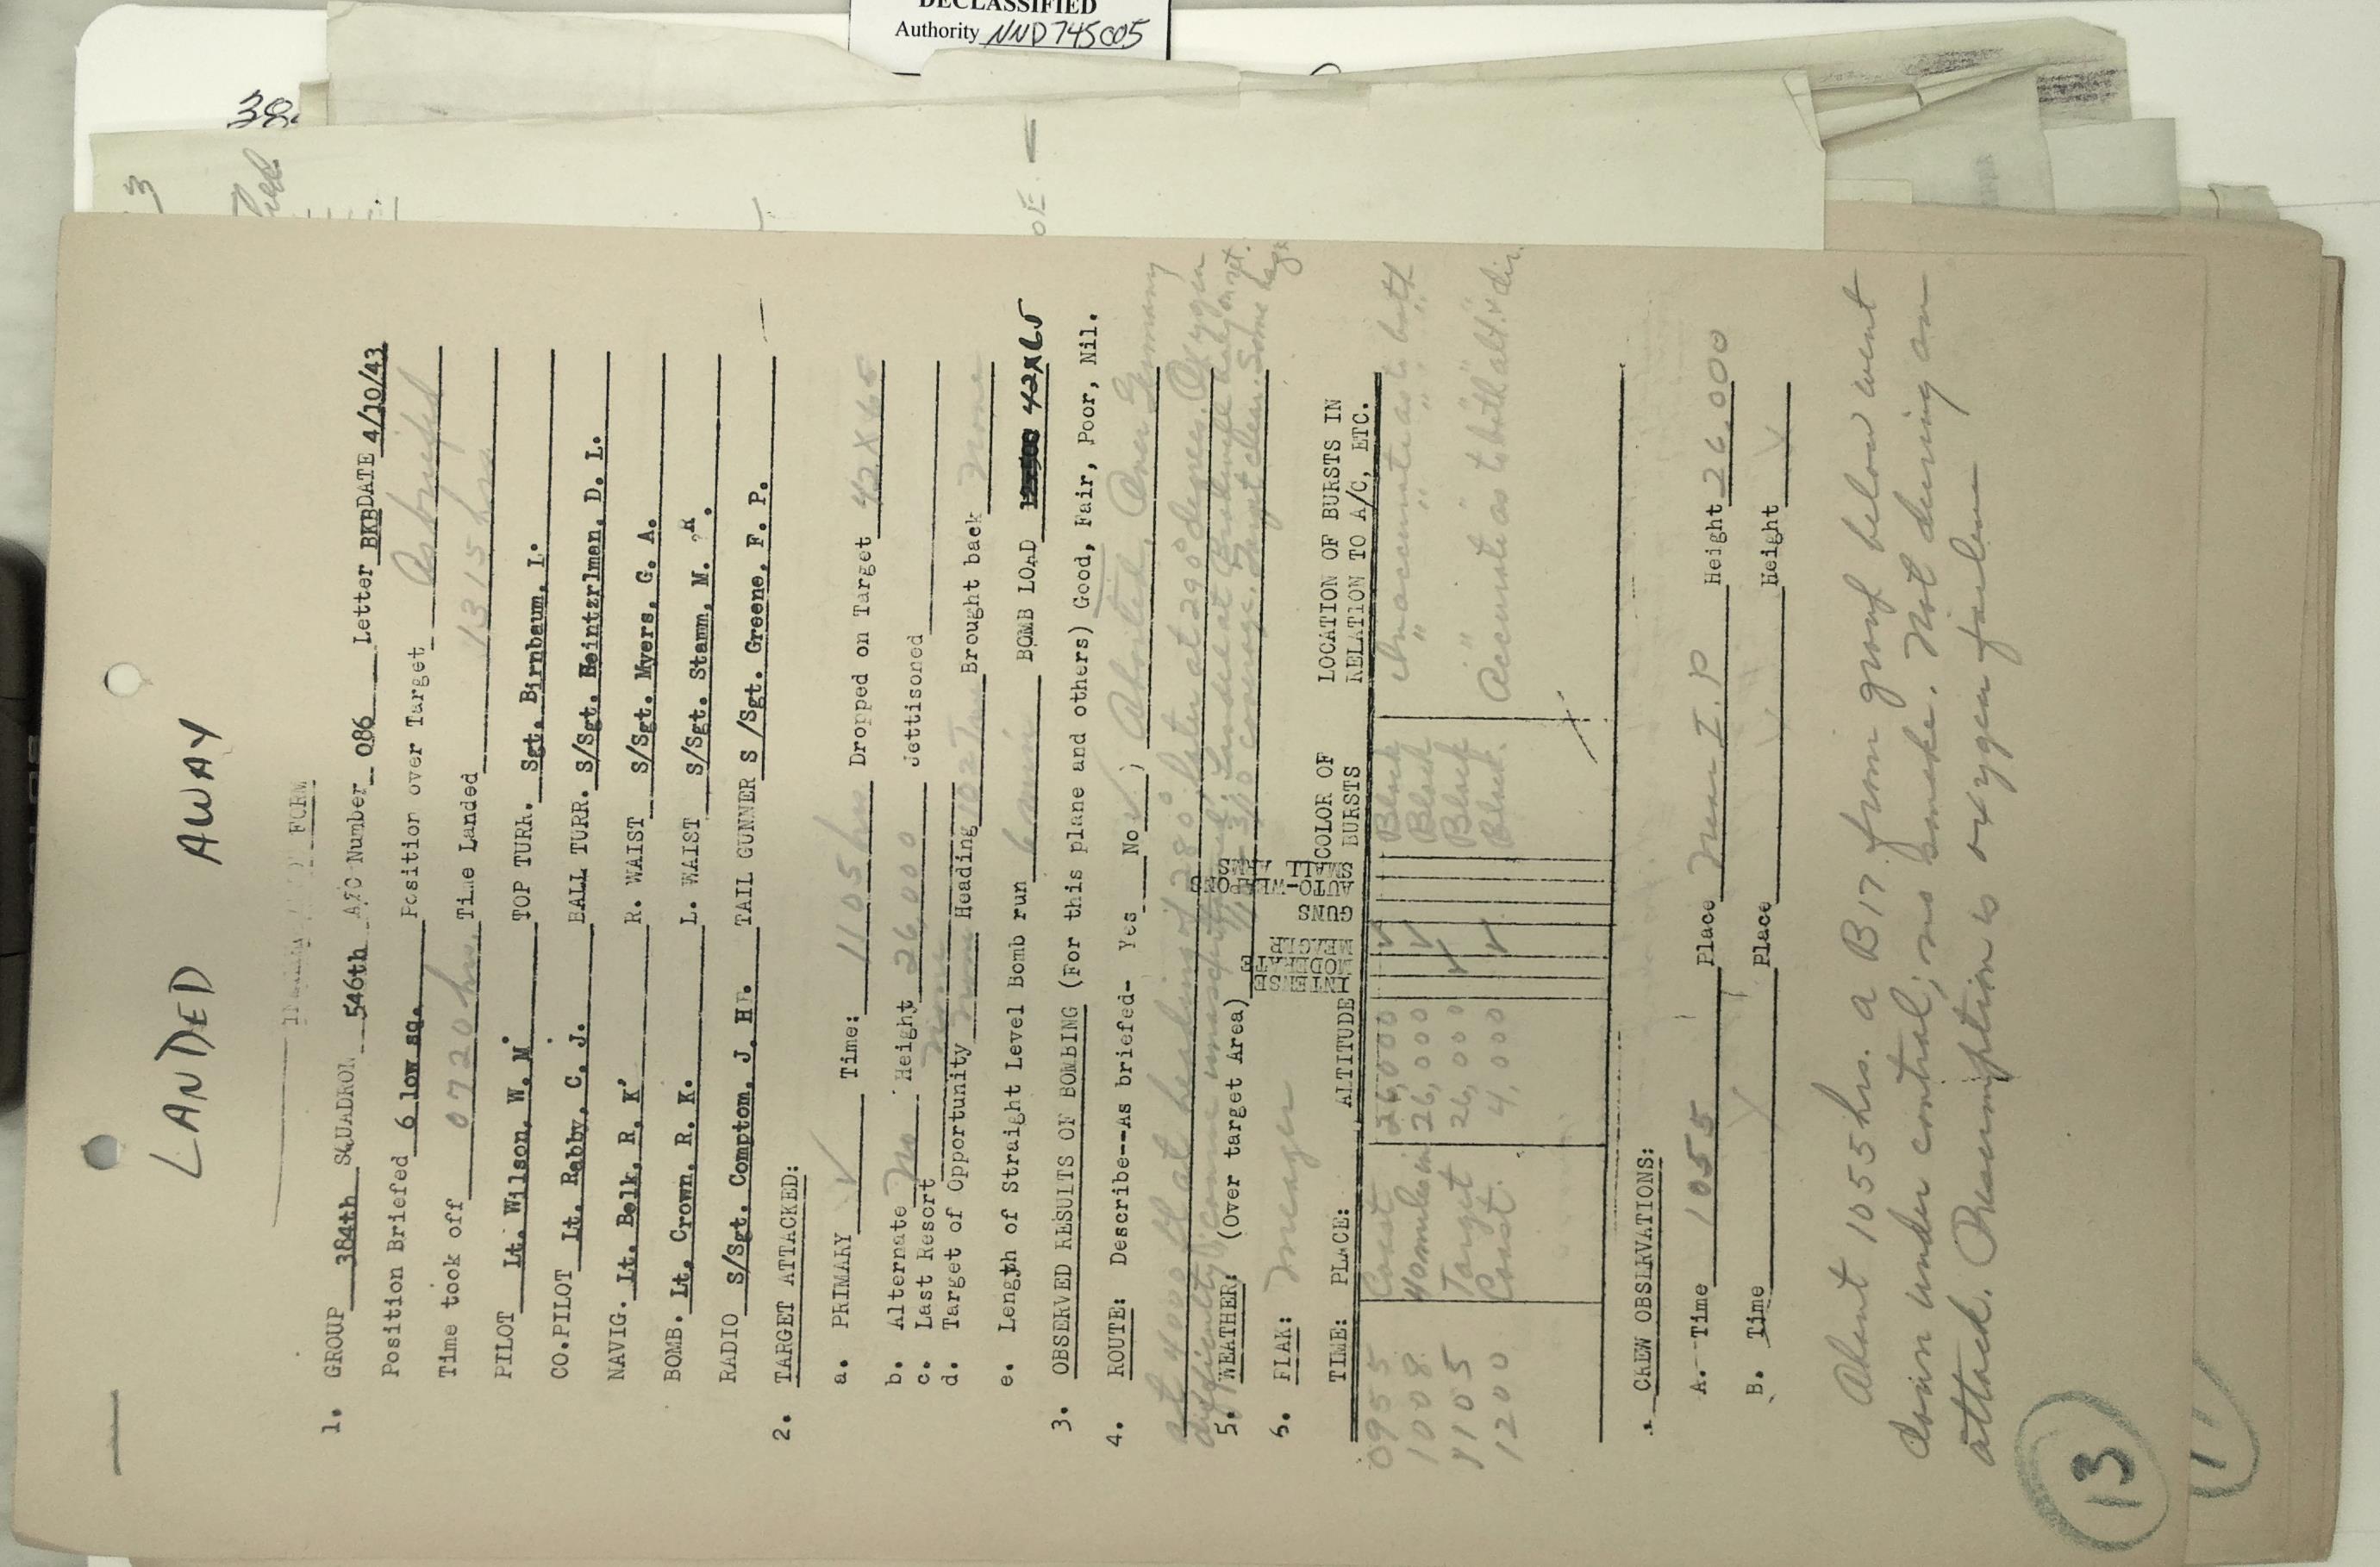 DECLASSIFIED
Authority NND 745005
LANDED AWAY
FORM
1. GROUP 384th SQUADRON 546th A/C Number 086 Letter BKB DATE 4/10/43
Position Briefed 6 low sq. Position over Target As briefed
Time took off 0720 hrs. Time Landed 1315 hrs
PILOT Lt. Wilson, W. M. TOP TURR. Sgt. Birnbaum, I.
CO.PILOT Lt. Rabby, C. J. BALL TURR. S/Sgt. Heintzrlman, D. L.
NAVIG. Lt. Bolk, R. K. R. WAIST S/Sgt. Myers, G. A.
BOMB. Lt. Crown, R. K. L. WAIST S/Sgt. Stamm, M. R.
RADIO S/Sgt. Comptom, J. H. TAIL GUNNER S/Sgt. Greene, F. P.
2. TARGET ATTACKED:
a. PRIMARY ✓ Time: 1105 hrs Dropped on Target 42 X 65
b. Alternate No Height 26,000 Jettisoned
c. Last Resort None
d. Target of Opportunity Heading 102 True Brought back None
e. Length of Straight Level Bomb run 6 min BOMB LOAD 42X65
3. OBSERVED RESULTS OF BOMBING (For this plane and others) Good, Fair, Poor, Nil.
4. ROUTE: Describe--As briefed- Yes No ✓; Aborted, Over Germany
at 4000 ft at heading of 280° later at 290° degrees. Oxygen
difficulty,
5. WEATHER: (Over target Area) 3/10 coverage. Target clear. Some haze
6. FLAK: meager
TIME: PLACE: ALTITUDE INTENSE MODERATE MEAGRE GUNS AUTO-WEAPONS SMALL ARMS COLOR OF BURSTS LOCATION OF BURSTS IN RELATION TO A/C, ETC.
0955 Coast 26,000 ✓ Black Inaccurate as to both
1008 40 miles in 26,000 ✓ Black " " " "
1105 Target 26,000 ✓ Black " "
1200 Coast. 4,000 ✓ Black. Accurate as to both alt. & dir.
CREW OBSERVATIONS:
A. Time 1055 Place Near I.P Height 26,000
B. Time Place Height
About 1055 hrs. a B17 from group below went
down under control; no smoke. Not during an
attack. Presumption is oxygen failure
13
11